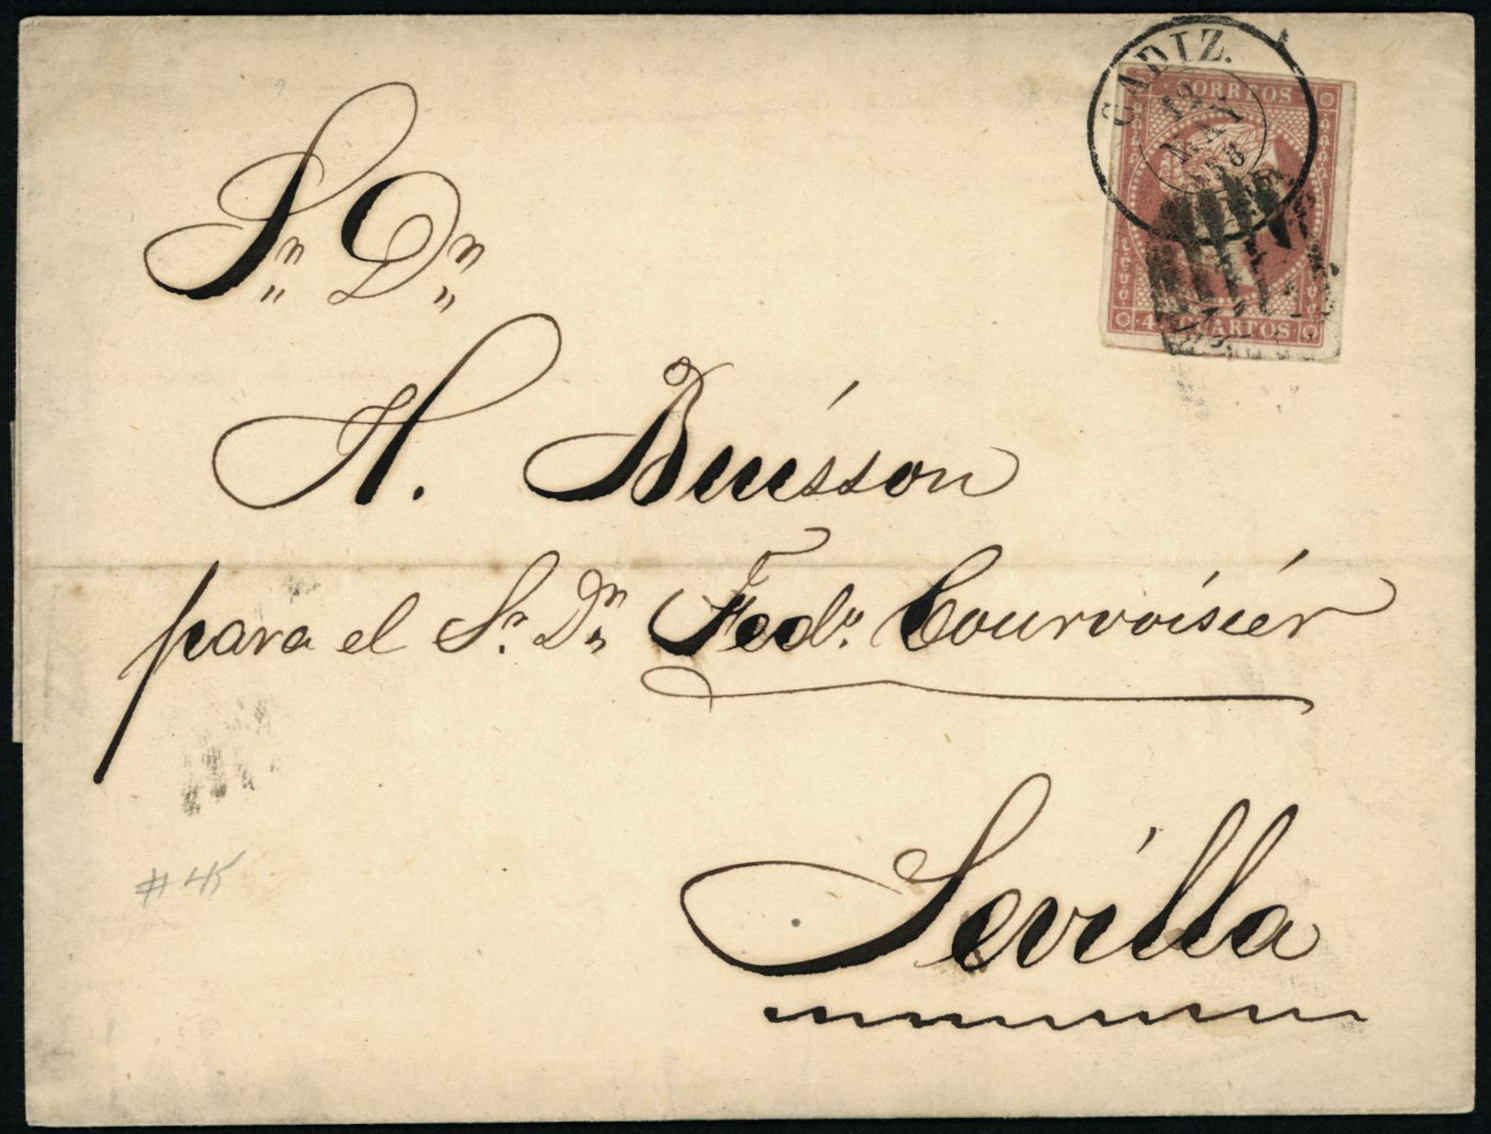 CADIZ.
MAY
CORREOS
4 CUARTOS
Sr. Dn.
H. Buisson
para el Sr. Dn. Fedo. Courvoisier
Sevilla
# 45